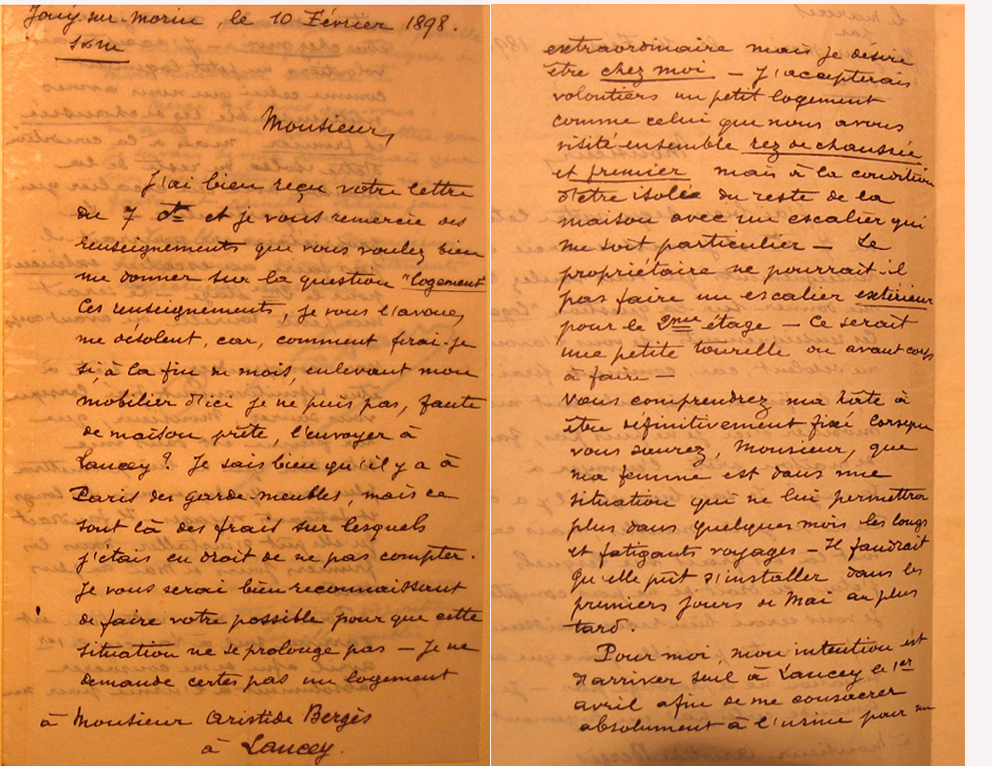 Jouy-sur-Morin, le 10 Février 1898.
S&M
Monsieur,
J'ai bien reçu votre lettre
du 7 ct et je vous remercie des
renseignements que vous voulez bien
me donner sur la question "logement"
Ces renseignements, je vous l'avoue,
me désolent, car, comment ferai-je
si, à la fin du mois, enlevant mon
mobilier d'ici je ne puis pas, faute
de maison prête, l'envoyer à
Lancey? Je sais bien qu'il y a à
Paris des garde-meubles, mais ce
sont là des frais sur lesquels
j'étais en droit de ne pas compter.
Je vous serai bien reconnaissant
de faire votre possible pour que cette
situation ne se prolonge pas — Je ne
demande certes pas un logement
à Monsieur Aristide Bergès
à Lancey.
extraordinaire mais je désire
être chez moi — J'accepterais
volontiers un petit logement
comme celui que nous avons
visité ensemble rez de chaussée
et premier mais à la condition
d'être isolée du reste de la
maison avec un escalier qui
me soit particulier — Le
propriétaire ne pourrait-il
pas faire un escalier extérieur
pour le 2me étage — Ce serait
une petite tourelle ou avant corps
à faire —
Vous comprendrez ma hâte à
être définitivement fixé lorsque
vous saurez, Monsieur, que
ma femme est dans une
situation qui ne lui permettra
plus dans quelques mois les longs
et fatigants voyages — Il faudrait
qu'elle pût s'installer dans les
premiers jours de Mai au plus
tard.
Pour moi, mon intention est
d'arriver seul à Lancey le 1er
avril afin de me consacrer
absolument à l'usine pour un